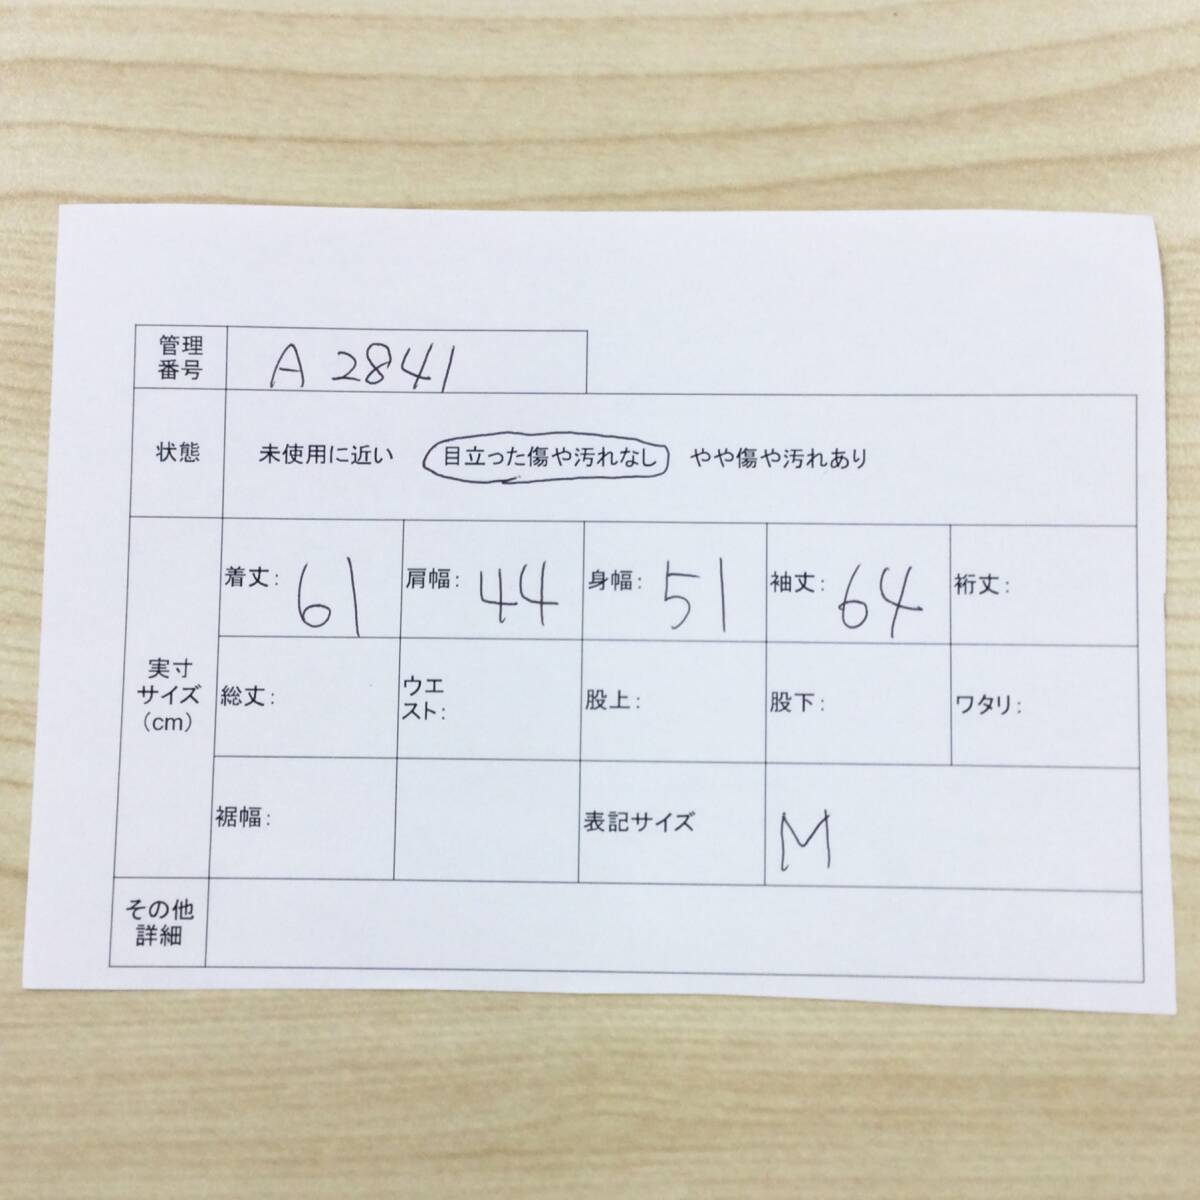 管理
番号
A 2841
状態
未使用に近い 目立った傷や汚れなし やや傷や汚れあり
実寸
サイズ
（cm）
着丈: 61 肩幅: 44 身幅: 51 袖丈: 64 裄丈:
総丈: ウエ
スト: 股上: 股下: ワタリ:
裾幅: 表記サイズ M
その他
詳細